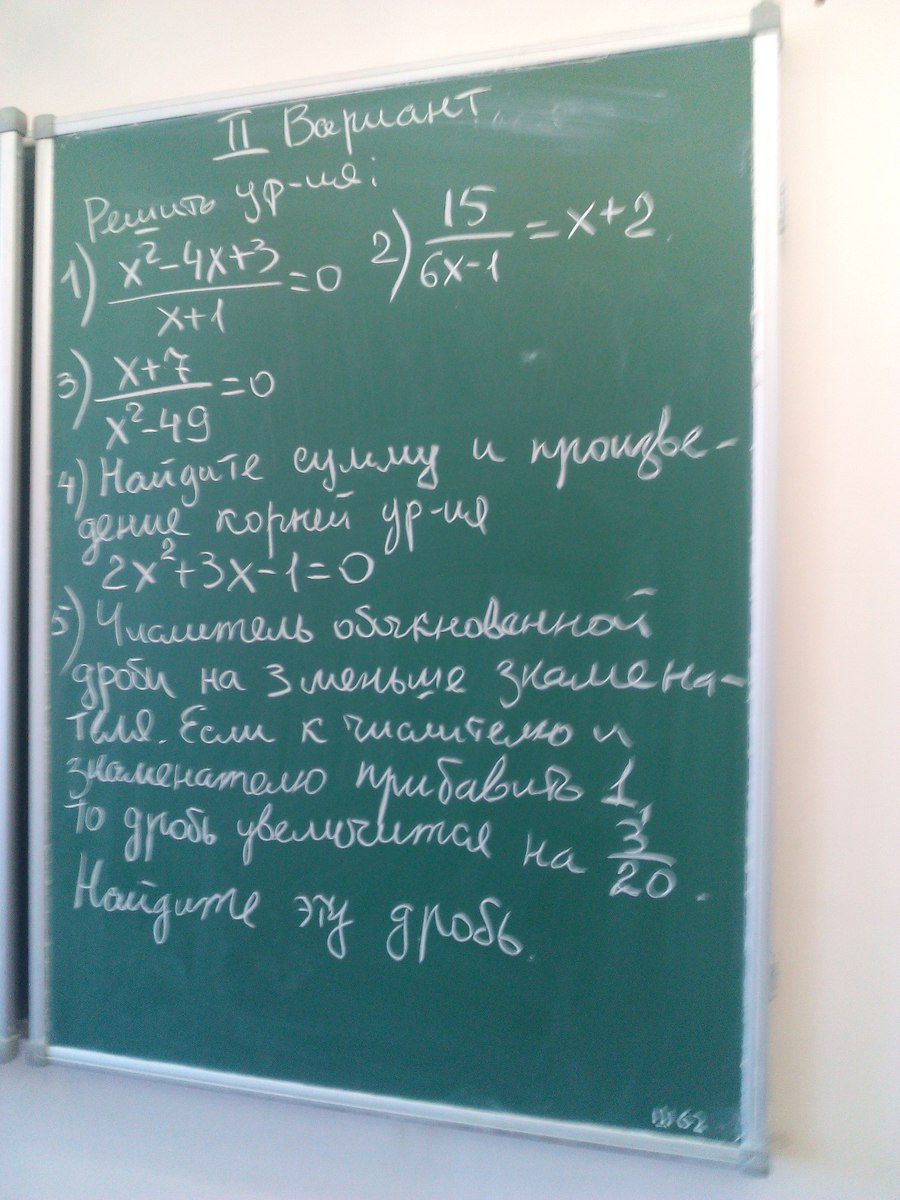 II Вариант.
Решить ур-ия:
1) (x²-4x+3)/(x+1) = 0 2) 15/(6x-1) = x+2
3) (x+7)/(x²-49) = 0
4) Найдите сумму и произве-
дение корней ур-ия
2x²+3x-1=0
5) Числитель обыкновенной
дроби на 3 меньше знамена-
теля. Если к числителю и
знаменателю прибавить 1,
то дробь увеличится на 3/20.
Найдите эту дробь.